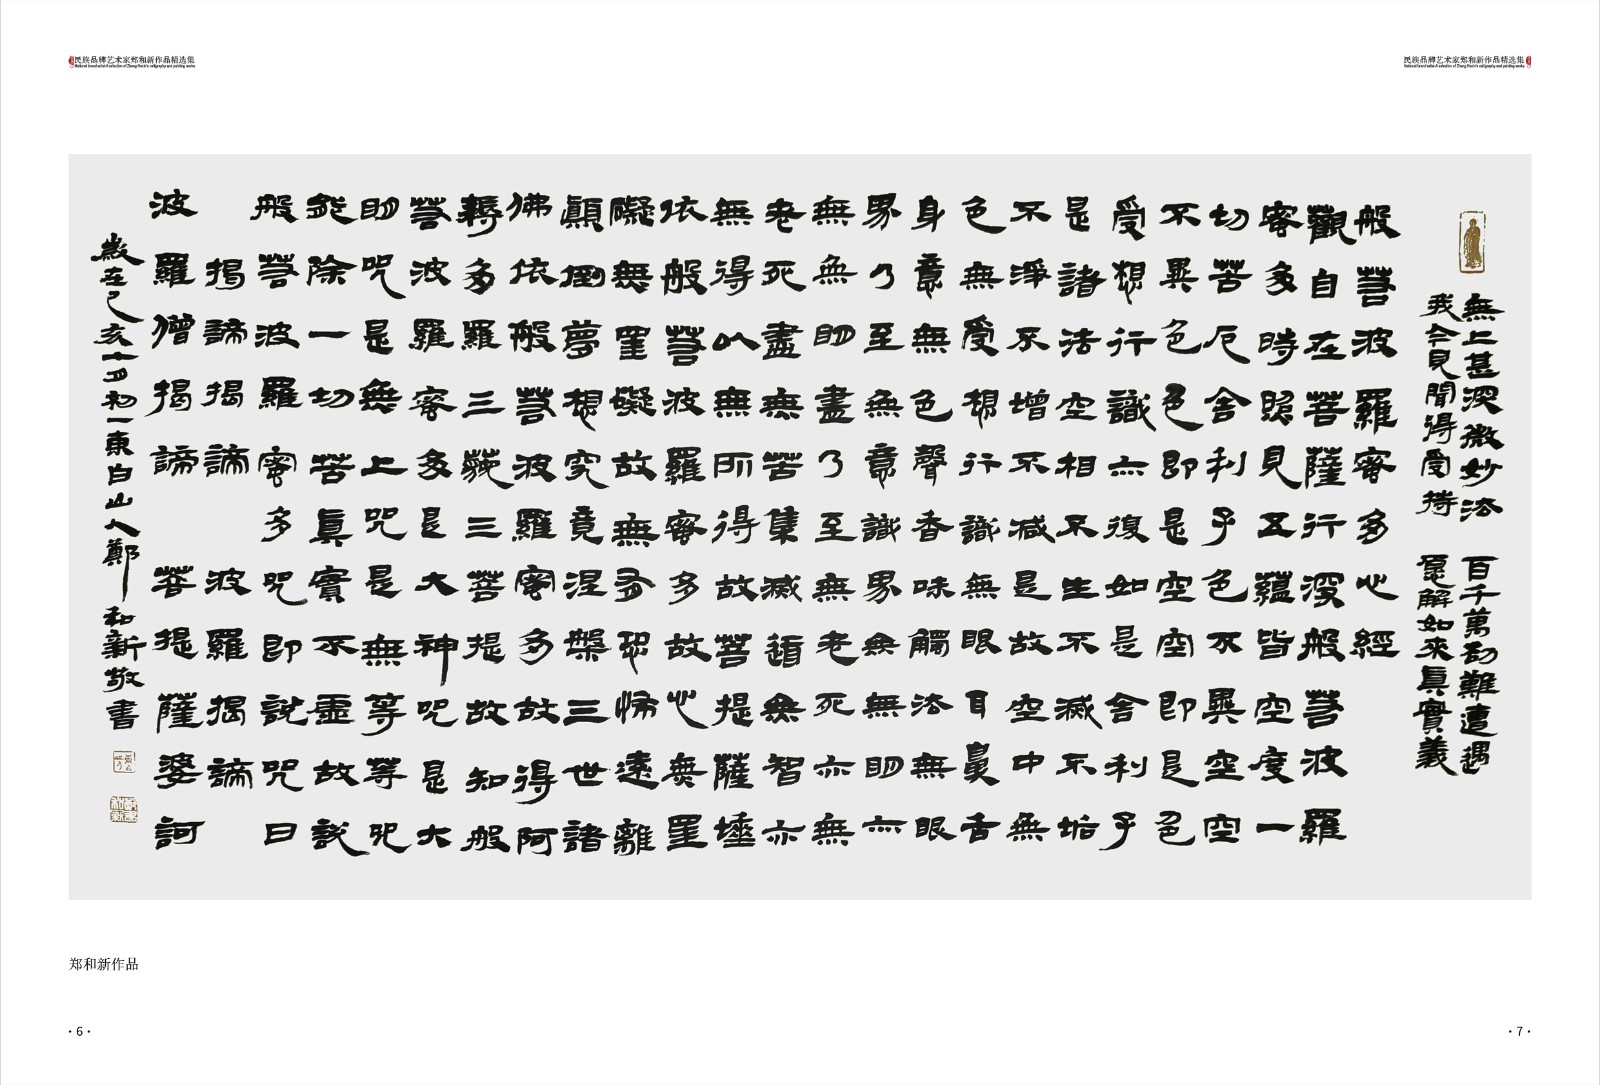 民族品牌艺术家郑和新作品精选集
National brand artist-A selection of Zheng Hexin's calligraphy and painting works
民族品牌艺术家郑和新作品精选集
National brand artist-A selection of Zheng Hexin's calligraphy and painting works
無上甚深微妙法 百千萬劫難遭遇
我今見聞得受持 愿解如來真實義
般若波羅蜜多心經
觀自在菩薩行深般若波羅
蜜多時照見五蘊皆空度一
切苦厄舍利子色不異空空
不異色色即是空空即是色
受想行識亦復如是舍利子
是諸法空相不生不滅不垢
不淨不增不减是故空中無
色無受想行識無眼耳鼻舌
身意無色聲香味觸法無眼
界乃至無意識界無無明亦
無無明盡乃至無老死亦無
老死盡無苦集滅道無智亦
無得以無所得故菩提薩埵
依般若波羅蜜多故心無罣
礙無罣礙故無有恐怖遠離
顛倒夢想究竟涅槃三世諸
佛依般若波羅蜜多故得阿
耨多羅三藐三菩提故知般
若波羅蜜多是大神咒是大
明咒是無上咒是無等等咒
能除一切苦真實不虛故說
般若波羅蜜多咒即說咒曰
揭諦揭諦 波羅揭諦
波羅僧揭諦 菩提薩婆訶
歲在己亥十月初一東白山人鄭和新敬書
郑和新作品
·6·
·7·